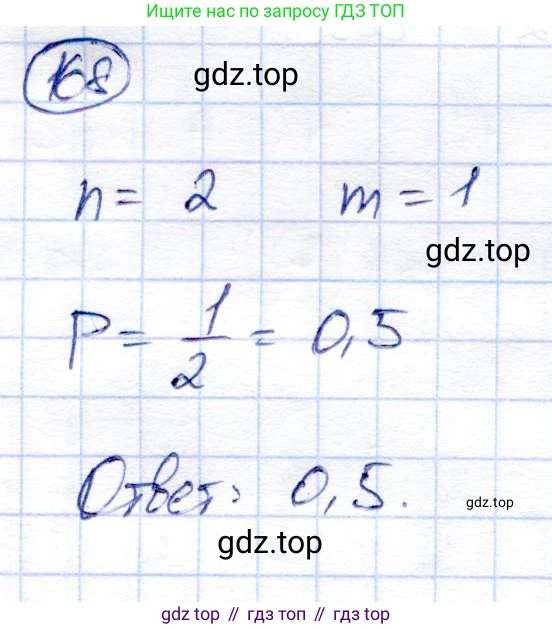 Ищите нас по запросу ГДЗ ТОП
168
gdz.top
n = 2 m = 1
gdz.top
P = 1/2 = 0,5
Ответ: 0,5.
gdz.top
gdz.top
gdz top // гдз топ // гдз top